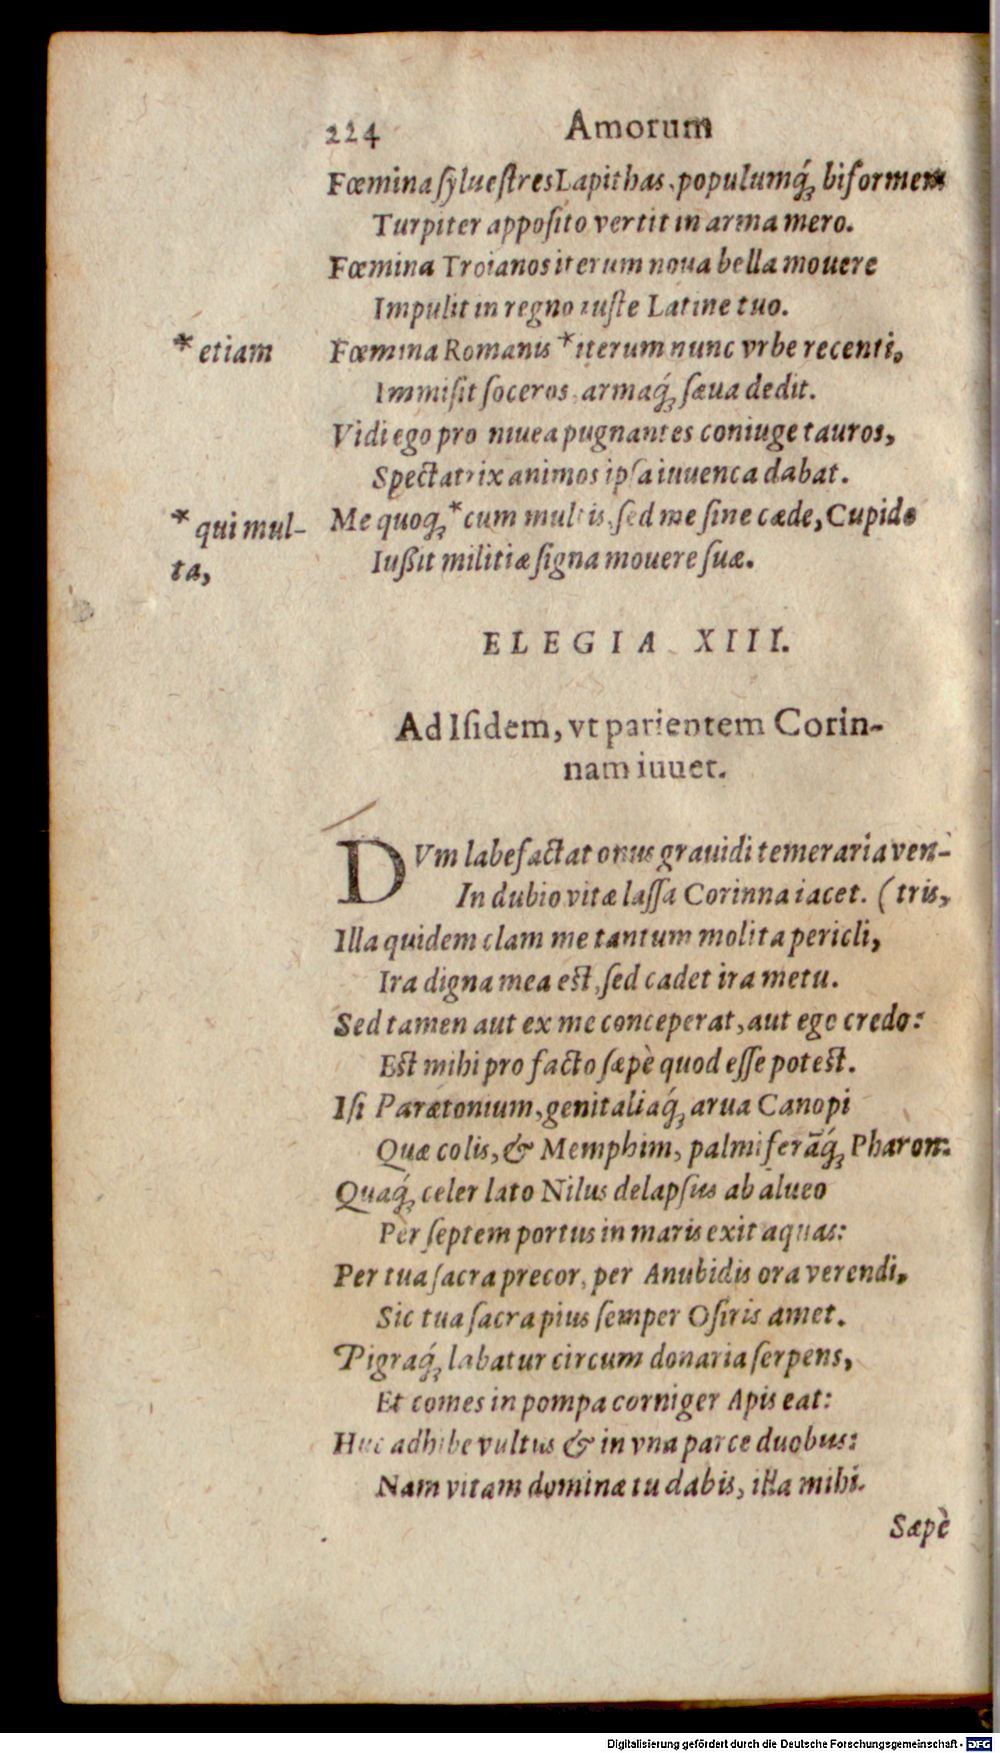 224 Amorum
Fœmina sylueſtres Lapithas, populumq́; biformem
Turpiter appoſito vertit in arma mero.
Fœmina Troianos iterum noua bella mouere
Impulit in regno iuſte Latine tuo.
* etiam
Fœmina Romanis * iterum nunc vrbe recenti,
Immiſit ſoceros, armaq́; ſæua dedit.
Vidi ego pro niuea pugnantes coniuge tauros,
Spectatrix animos ipſa iuuenca dabat.
* qui mul-
ta,
Me quoq; * cum multis, ſed me ſine cæde, Cupido
Iußit militiæ ſigna mouere ſuæ.
ELEGIA XIII.
Ad Iſidem, vt parientem Corin-
nam iuuet.
DVm labefactat onus grauidi temeraria ven-
In dubio vitæ laſſa Corinna iacet. (tris,
Illa quidem clam me tantum molita pericli,
Ira digna mea eſt, ſed cadet ira metu.
Sed tamen aut ex me conceperat, aut ego credo:
Eſt mihi pro facto ſæpè quod eſſe poteſt.
Iſi Parætonium, genitaliaq́; arua Canopi
Quæ colis, & Memphim, palmiferāq́; Pharon:
Quaq́; celer lato Nilus delapſus ab alueo
Per ſeptem portus in maris exit aquas:
Per tua ſacra precor, per Anubidis ora verendi,
Sic tua ſacra pius ſemper Oſiris amet.
Pigraq́; labatur circum donaria ſerpens,
Et comes in pompa corniger Apis eat:
Huc adhibe vultus & in vna parce duobus:
Nam vitam dominæ tu dabis, illa mihi.
Sæpè
Digitalisierung gefördert durch die Deutsche Forschungsgemeinschaft - DFG